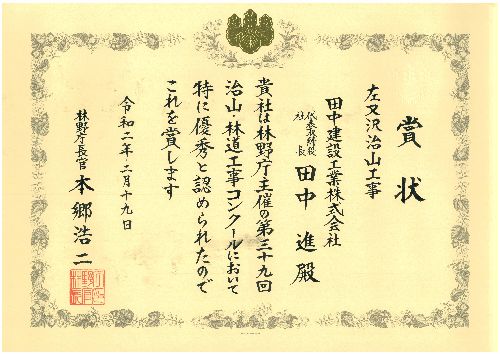 賞状
左又沢治山工事
田中建設工業株式会社
代表取締役
社長
田中進殿
貴社は林野庁主催の第三十九回
治山・林道工事コンクールにおいて
特に優秀と認められたので
これを賞します
令和二年二月十九日
林野庁長官 本郷浩二